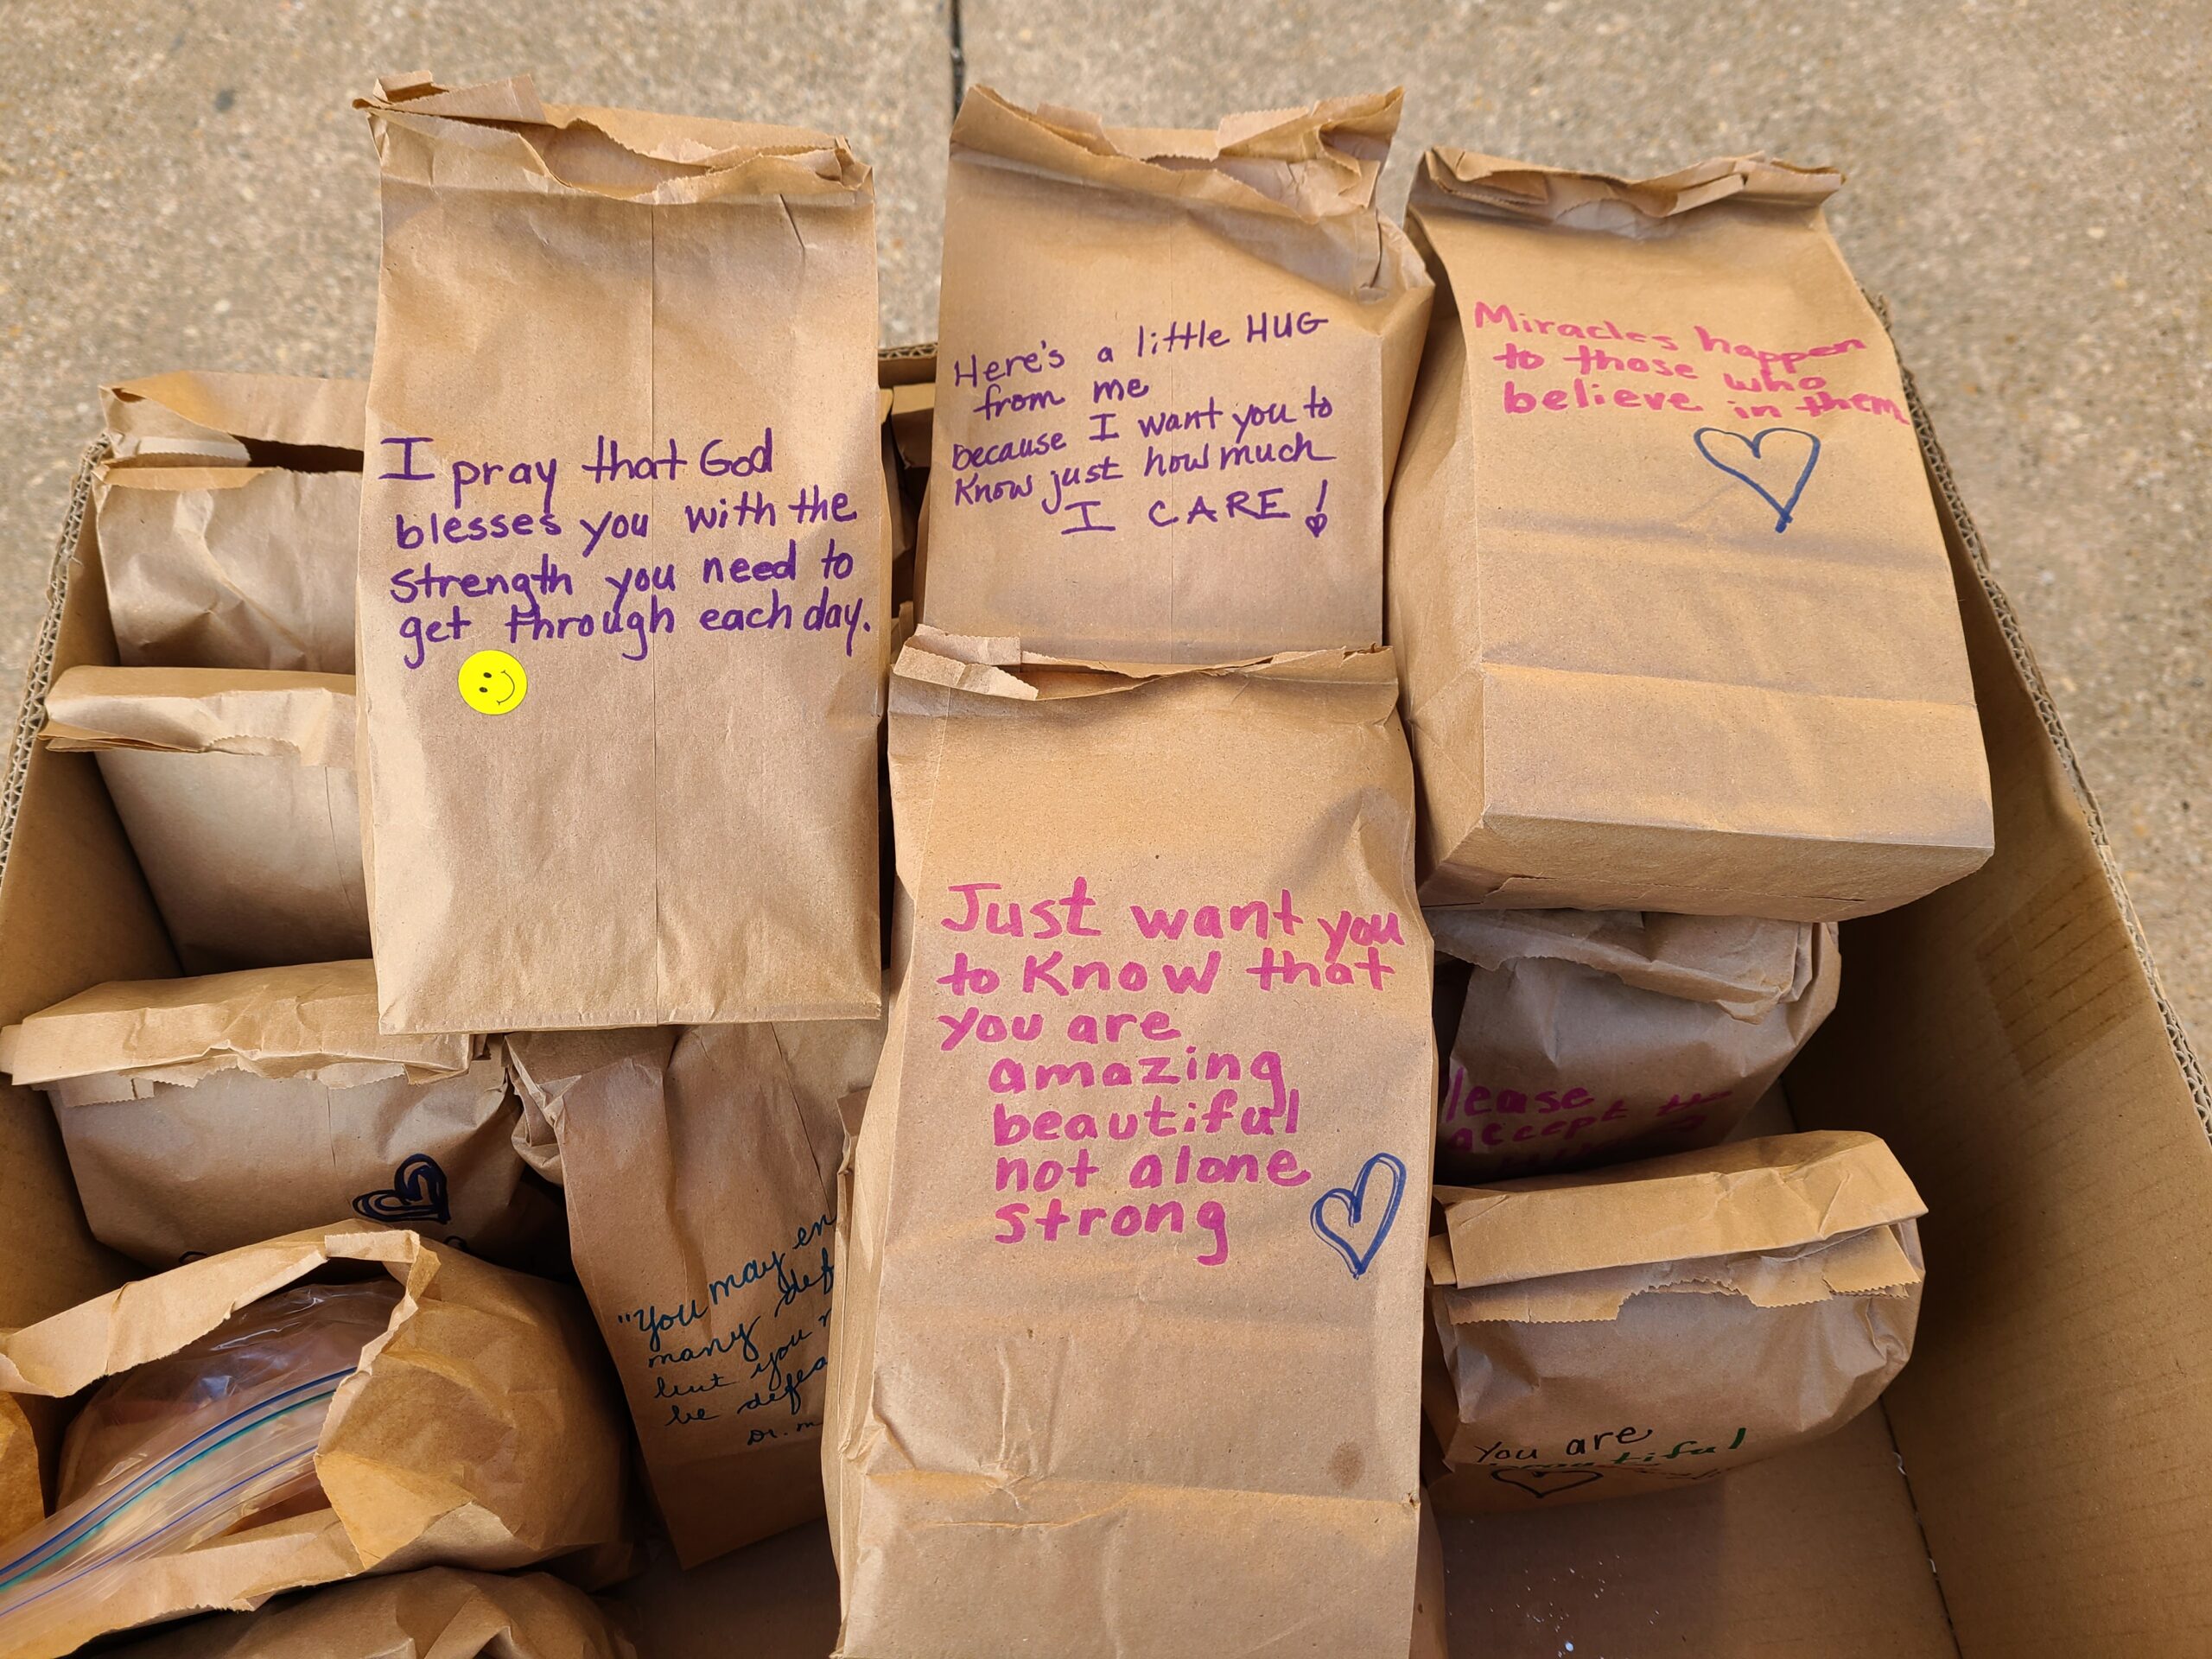 I pray that God
blesses you with the
strength you need to
get through each day.
Here's a little HUG
from me
because I want you to
Know just how much
I CARE!
Miracles happen
to those who
believe in them
Just want you
to Know that
you are
amazing
beautiful
not alone
strong
lease
accept
"You may en
many def
but you
be defea
Dr. m
You are